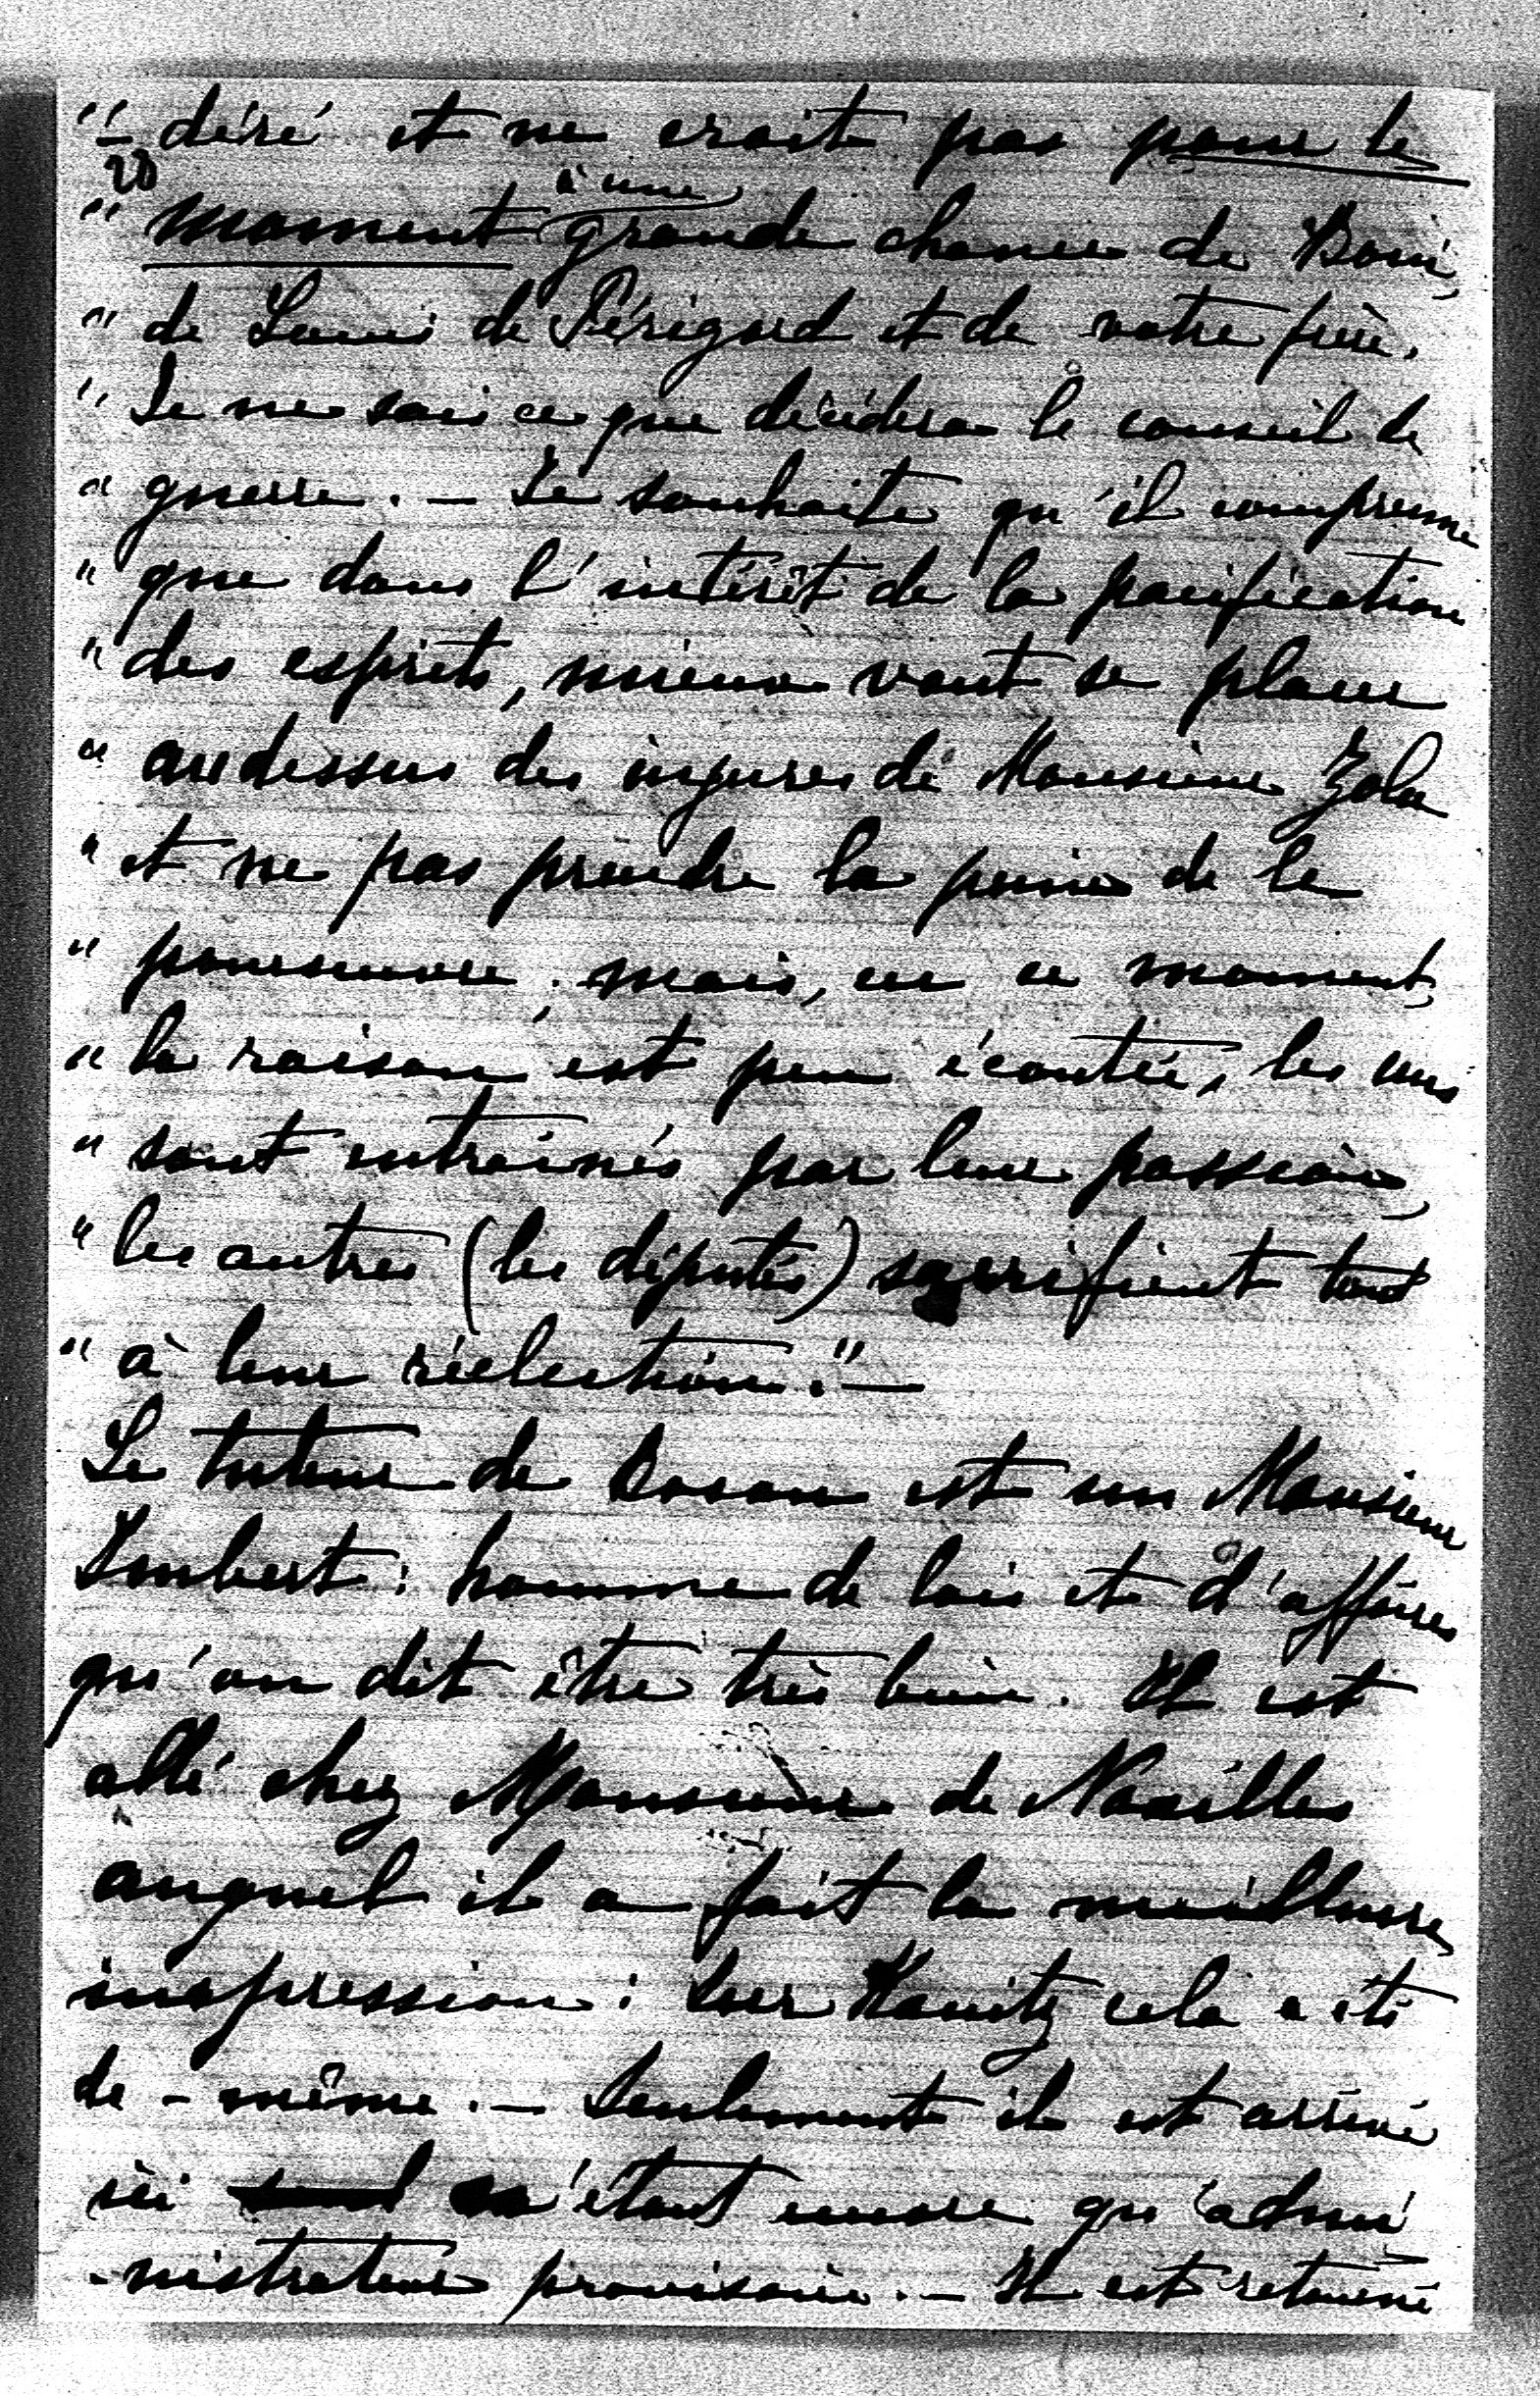 " -déré et ne croit pas pour le
20
à une
" moment grande chance de Boni,
" de Louis de Périgord et de votre frère.
" Je ne sais ce que décidera le conseil de
" guerre. — Je souhaite qu'il comprenne
" que dans l'intérêt de la pacification
" des esprits, mieux vaut se placer
" audessus des injures de Monsieur Zola
" et ne pas prendre la peine de le
" poursuivre; mais, en ce moment,
" la raison est peu écoutée, les uns
" sont entrainés par leur passion,
" les autres (les députés) sacrifient tout
" à leur réélection." —
Le tuteur de Boson est un Monsieur
Imbert: homme de lois et d'affaires
qu'on dit être très bien. Il est
allé chez Monsieur de Noailles
auquel il a fait la meilleure
impression: sur Kanitz cela a été
de-même. — Seulement il est arrivé
ici n'étant encore qu'admi
-nistrateur provisoire. — Il est retourné